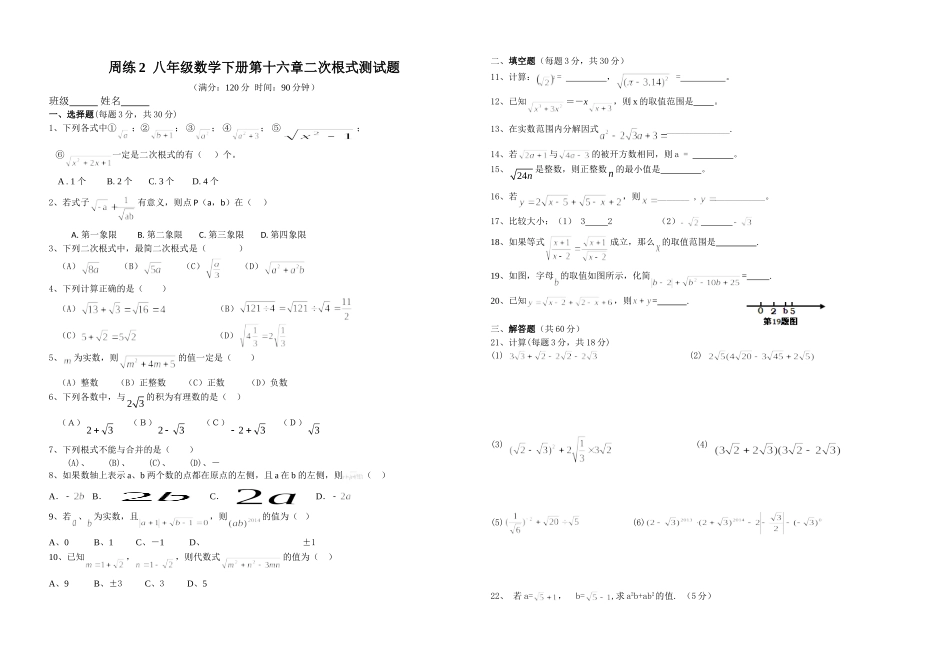 周练 2 八年级数学下册第十六章二次根式测试题
（满分：120 分 时间：90 分钟）
班级______ 姓名______
一、选择题(每题 3 分，共 30 分)
1、下列各式中① √a ；② √(b+1) ； ③ √a² ； ④ √(a²+3) ； ⑤ √(x²－1) ；
⑥ √(x²+2x+1) 一定是二次根式的有（ ）个。
A . 1 个 B. 2 个 C. 3 个 D. 4 个
2、若式子 √(-a) + 1/√(ab) 有意义，则点 P（a，b）在（ ）
A. 第一象限 B. 第二象限 C. 第三象限 D. 第四象限
3、下列二次根式中，最简二次根式是（ ）
（A） √(8a) （B） √(5a) （C） √(a/3) （D） √(a²+a²b)
4、下列计算正确的是（ ）
（A） √13+√3=√16=4 （B） √(121÷4)=√121÷√4=11/2
（C） 5+√2=5√2 （D） √(4 1/3)=2√(1/3)
5、 m 为实数，则 √(m²+4m+5) 的值一定是（ ）
（A）整数 （B）正整数 （C）正数 （D）负数
6、下列各数中，与 2√3 的积为有理数的是（ ）
（A） 2+√3 （B） 2-√3 （C） -2+√3 （D） √3
7、下列根式不能与合并的是（ ）
(A)、 (B)、 (C)、 (D)、－
8、如果数轴上表示 a、b 两个数的点都在原点的左侧，且 a 在 b 的左侧，则（ ）
A. －2b B. 2b C. 2a D. －2a
9、若 a 、 b 为实数，且 |a+1|+√(b-1)=0 ，则 (ab)²⁰¹⁴ 的值为（ ）
A、0 B、1 C、－1 D、 ±1
10、已知 m=1+√2 ， n=1-√2 ，则代数式 √(m²+n²-3mn) 的值为（ ）
A、9 B、±3 C、3 D、5
二、填空题（每题 3 分，共 30 分）
11、计算：(√2)² = ________，√((x-3.14)²) =_________。
12、已知 √(x³+3x²) =－x √(x+3) ，则 x 的取值范围是____。
13、在实数范围内分解因式 a²-2√3a+3=____________.
14、若 √(2a+1) 与 √(4a-3) 的被开方数相同，则 a = ________。
15、 √(24n) 是整数，则正整数 n 的最小值是________。
16、若 y=2√(x-5)+√(5-x)+2 ，则 x=________ ，y=____________。
17、比较大小：（1） 3_____2 （2） -√2 ______ -√3
18、如果等式 √((x+1)/(x-2))=√(x+1)/√(x-2) 成立，那么 x 的取值范围是________.
19、如图，字母 b 的取值如图所示，化简 |b-2|+√(b²-10b+25) =_____.
20、已知 y=√(x-2)+√(2-x)+6 ，则 x+y=______.
0 2 b 5
第19题图
三、解答题（共 60 分）
21、计算(每题 3 分，共 18 分)
(1) 3√3+√2-2√2-2√3 (2) 2√5(4√20-3√45+2√5)
(3) (√2-√3)²+2√(1/3)×3√2 (4) (3√2+2√3)(3√2-2√3)
(5) (1/√6)²+√20÷√5 (6) (2-√3)²⁰¹³·(2+√3)²⁰¹⁴-2|-√3/2|-(-√3)⁰
22、 若 a=√5+1， b=√5-1,求 a²b+ab²的值. （5 分）